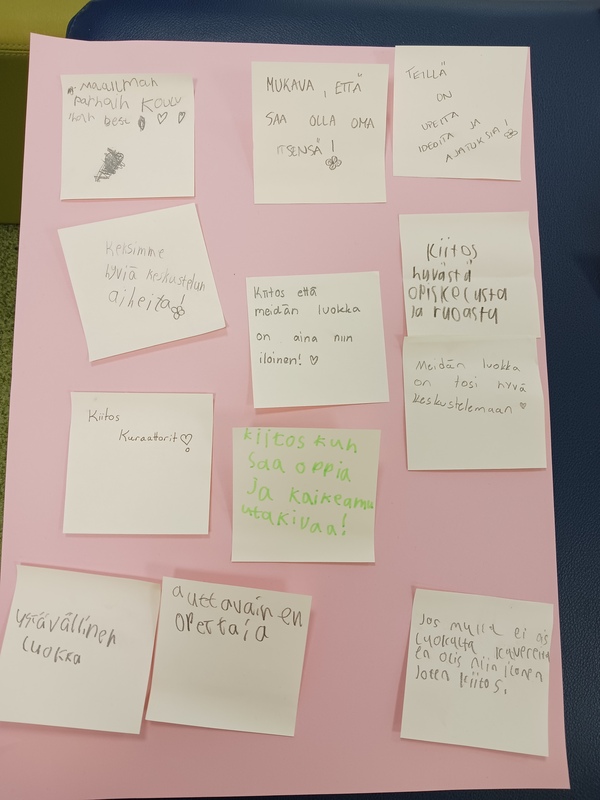 maailman
parhain koulu
ikan best
MUKAVA, ETTÄ
SAA OLLA OMA
ITSENSÄ!
TEILLÄ
ON
UPEITA
IDEOITA JA
AJATUKSIA!
Keksimme
hyviä keskustelun
aiheita!
Kiitos että
meidän luokka
on aina niin
iloinen! ♡
Kiitos
hyvästä
opiskelusta
ja ruoasta
Meidän luokka
on tosi hyvä
keskustelemaan ♡
Kiitos
Kuraattorit♡!
kiitos kun
saa oppia
ja kaikeamu
utakivaa!
ystävällinen
luokka
auttavainen
opettaja
Jos mulla ei ois
luokalta kavereita
en olis niin iloinen
joten kiitos.